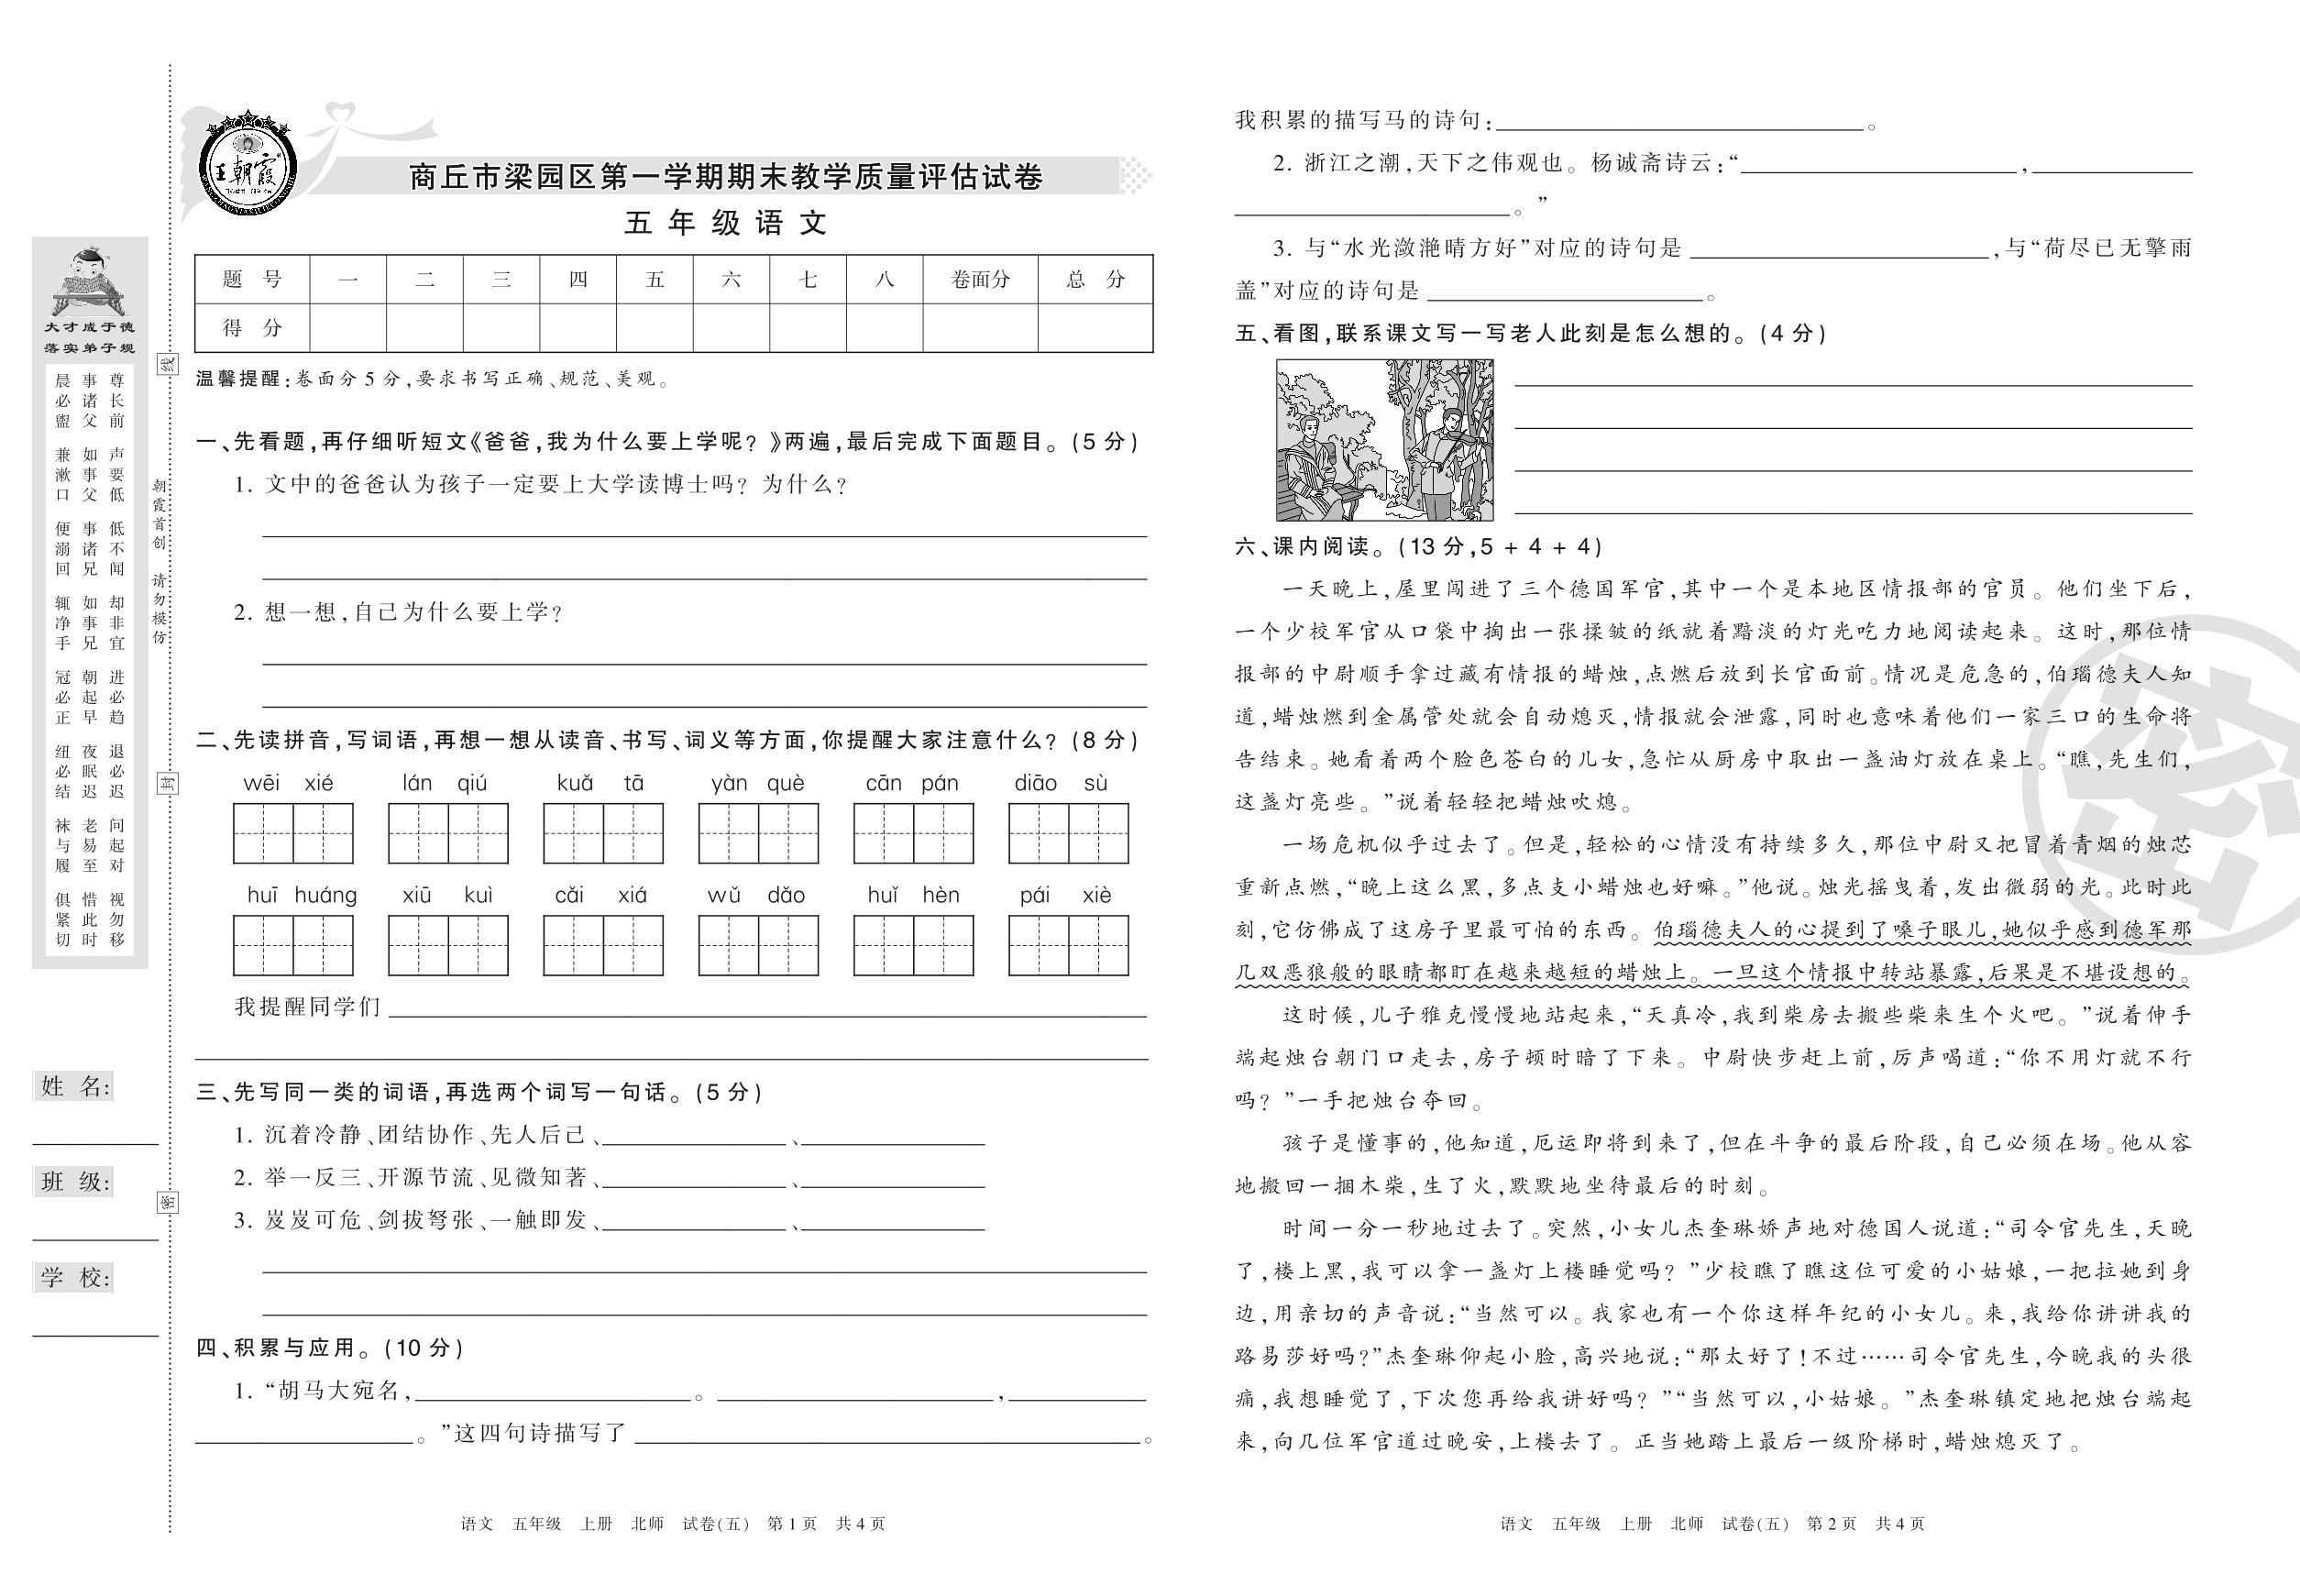 王朝霞
商丘市梁园区第一学期期末教学质量评估试卷
五年级语文
题 号 一 二 三 四 五 六 七 八 卷面分 总 分
得 分
温馨提醒:卷面分5分,要求书写正确、规范、美观。
一、先看题,再仔细听短文《爸爸,我为什么要上学呢?》两遍,最后完成下面题目。(5分)
1. 文中的爸爸认为孩子一定要上大学读博士吗? 为什么?
2. 想一想,自己为什么要上学?
二、先读拼音,写词语,再想一想从读音、书写、词义等方面,你提醒大家注意什么?(8分)
wēi xié lán qiú kuǎ tā yàn què cān pán diāo sù
huī huáng xiū kuì cǎi xiá wǔ dǎo huǐ hèn pái xiè
我提醒同学们
三、先写同一类的词语,再选两个词写一句话。(5分)
1. 沉着冷静、团结协作、先人后己、 、
2. 举一反三、开源节流、见微知著、 、
3. 岌岌可危、剑拔弩张、一触即发、 、
四、积累与应用。(10分)
1. “胡马大宛名, 。 ,
。”这四句诗描写了 。
语文 五年级 上册 北师 试卷(五) 第1页 共4页
大才成于德
落实弟子规
尊长前 声要低 低不闻 却非宜 进必趋 退必迟 问起对 视勿移
事诸父 如事父 事诸兄 如事兄 朝起早 夜眠迟 老易至 惜此时
晨必盥 兼漱口 便溺回 辄净手 冠必正 纽必结 袜与履 俱紧切
朝霞首创 请勿模仿
线
封
密
姓 名:
班 级:
学 校:
我积累的描写马的诗句: 。
2. 浙江之潮,天下之伟观也。杨诚斋诗云:“ ,
。”
3. 与“水光潋滟晴方好”对应的诗句是 ,与“荷尽已无擎雨
盖”对应的诗句是 。
五、看图,联系课文写一写老人此刻是怎么想的。(4分)
六、课内阅读。(13分,5 + 4 + 4)
一天晚上,屋里闯进了三个德国军官,其中一个是本地区情报部的官员。他们坐下后,
一个少校军官从口袋中掏出一张揉皱的纸就着黯淡的灯光吃力地阅读起来。这时,那位情
报部的中尉顺手拿过藏有情报的蜡烛,点燃后放到长官面前。情况是危急的,伯瑙德夫人知
道,蜡烛燃到金属管处就会自动熄灭,情报就会泄露,同时也意味着他们一家三口的生命将
告结束。她看着两个脸色苍白的儿女,急忙从厨房中取出一盏油灯放在桌上。“瞧,先生们,
这盏灯亮些。”说着轻轻把蜡烛吹熄。
一场危机似乎过去了。但是,轻松的心情没有持续多久,那位中尉又把冒着青烟的烛芯
重新点燃,“晚上这么黑,多点支小蜡烛也好嘛。”他说。烛光摇曳着,发出微弱的光。此时此
刻,它仿佛成了这房子里最可怕的东西。伯瑙德夫人的心提到了嗓子眼儿,她似乎感到德军那
几双恶狼般的眼睛都盯在越来越短的蜡烛上。一旦这个情报中转站暴露,后果是不堪设想的。
这时候,儿子雅克慢慢地站起来,“天真冷,我到柴房去搬些柴来生个火吧。”说着伸手
端起烛台朝门口走去,房子顿时暗了下来。中尉快步赶上前,厉声喝道:“你不用灯就不行
吗?”一手把烛台夺回。
孩子是懂事的,他知道,厄运即将到来了,但在斗争的最后阶段,自己必须在场。他从容
地搬回一捆木柴,生了火,默默地坐待最后的时刻。
时间一分一秒地过去了。突然,小女儿杰奎琳娇声地对德国人说道:“司令官先生,天晚
了,楼上黑,我可以拿一盏灯上楼睡觉吗?”少校瞧了瞧这位可爱的小姑娘,一把拉她到身
边,用亲切的声音说:“当然可以。我家也有一个你这样年纪的小女儿。来,我给你讲讲我的
路易莎好吗?”杰奎琳仰起小脸,高兴地说:“那太好了!不过……司令官先生,今晚我的头很
痛,我想睡觉了,下次您再给我讲好吗?”“当然可以,小姑娘。”杰奎琳镇定地把烛台端起
来,向几位军官道过晚安,上楼去了。正当她踏上最后一级阶梯时,蜡烛熄灭了。
密
语文 五年级 上册 北师 试卷(五) 第2页 共4页